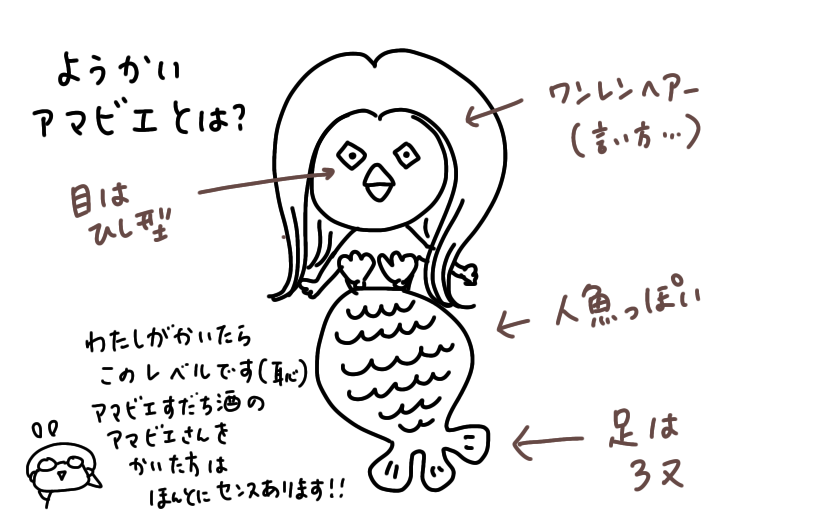 ようかい
アマビエとは?
ワンレンヘアー
(言い方…)
目は
ひし型
人魚っぽい
わたしがかいたら
このレベルです(恥)
アマビエすだち酒の
アマビエさんを
かいた方は
ほんとにセンスあります!!
足は
3又